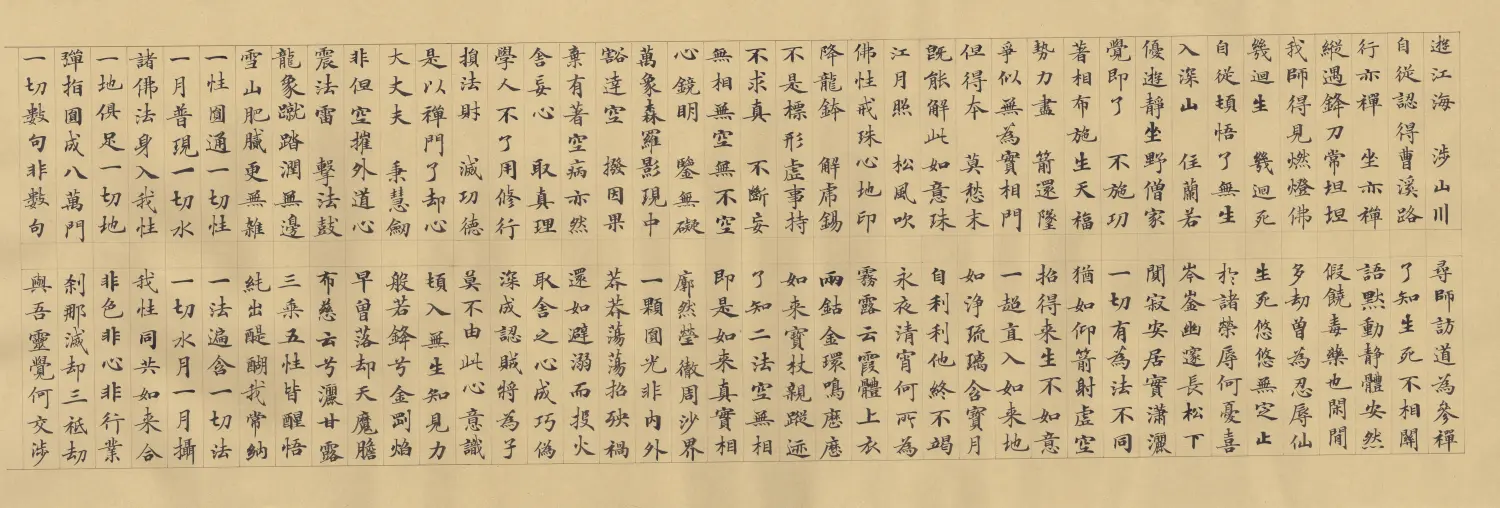 遊江海　涉山川　尋師訪道為參禪
自從認得曹溪路　了知生死不相關
行亦禪　坐亦禪　語默動靜體安然
縱遇鋒刀常坦坦　假饒毒藥也閑閒
我師得見燃燈佛　多劫曾為忍辱仙
幾迴生　幾迴死　生死悠悠無定止
自從頓悟了無生　於諸榮辱何憂喜
入深山　住蘭若　岑崟幽邃長松下
優遊靜坐野僧家　闃寂安居實瀟灑
覺即了　不施功　一切有為法不同
著相布施生天福　猶如仰箭射虛空
勢力盡　箭還墜　招得来生不如意
爭似無為實相門　一超直入如来地
但得本　莫愁末　如淨琉璃含寶月
既能解此如意珠　自利利他終不竭
江月照　松風吹　永夜清宵何所為
佛性戒珠心地印　霧露云霞體上衣
降龍鉢　解虎錫　兩鈷金環鳴歷歷
不是標形虛事持　如来寶杖親蹤跡
不求真　不斷妄　了知二法空無相
無相無空無不空　即是如来真實相
心鏡明　鑒無礙　廓然瑩徹周沙界
萬象森羅影現中　一顆圓光非內外
豁達空　撥因果　莽莽蕩蕩招殃禍
棄有著空病亦然　還如避溺而投火
舍妄心　取真理　取舍之心成巧偽
學人不了用修行　深成認賊將為子
損法財　滅功德　莫不由此心意識
是以禪門了却心　頓入無生知見力
大丈夫　秉慧劍　般若鋒兮金剛焰
非但空摧外道心　早曾落却天魔膽
震法雷　擊法鼓　布慈云兮灑甘露
龍象蹴踏潤無邊　三乘五性皆醒悟
雪山肥膩更無雜　純出醍醐我常納
一性圓通一切性　一法遍含一切法
一月普現一切水　一切水月一月攝
諸佛法身入我性　我性同共如来合
一地俱足一切地　非色非心非行業
彈指圓成八萬門　剎那滅却三祇劫
一切數句非數句　與吾靈覺何交涉